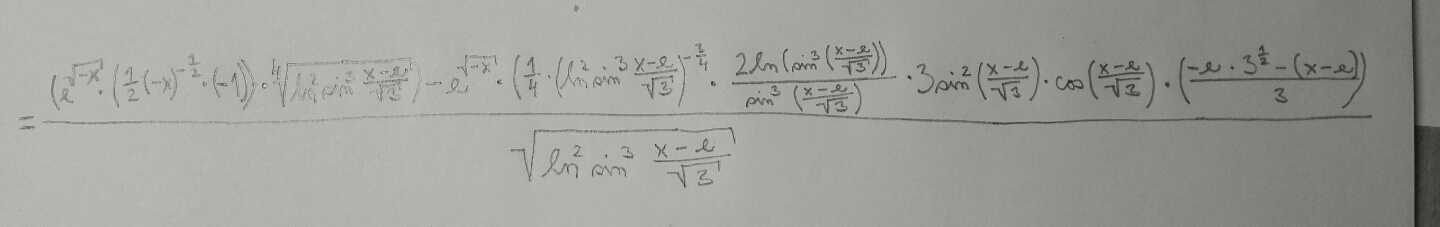 = \frac{(e^{\sqrt{-x}} \cdot (\frac{1}{2}(-x)^{-\frac{1}{2}} \cdot (-1)) \cdot \sqrt[4]{\ln^2 \sin^3 \frac{x-e}{\sqrt{3}}} - e^{\sqrt{-x}} \cdot (\frac{1}{4} \cdot (\ln^2 \sin^3 \frac{x-e}{\sqrt{3}})^{-\frac{3}{4}} \cdot \frac{2\ln(\sin^3(\frac{x-e}{\sqrt{3}}))}{\sin^3(\frac{x-e}{\sqrt{3}})} \cdot 3\sin^2(\frac{x-e}{\sqrt{3}}) \cdot \cos(\frac{x-e}{\sqrt{3}}) \cdot (\frac{-e \cdot 3^{\frac{1}{2}} - (x-e)}{3}))}{\sqrt{\ln^2 \sin^3 \frac{x-e}{\sqrt{3}}}}